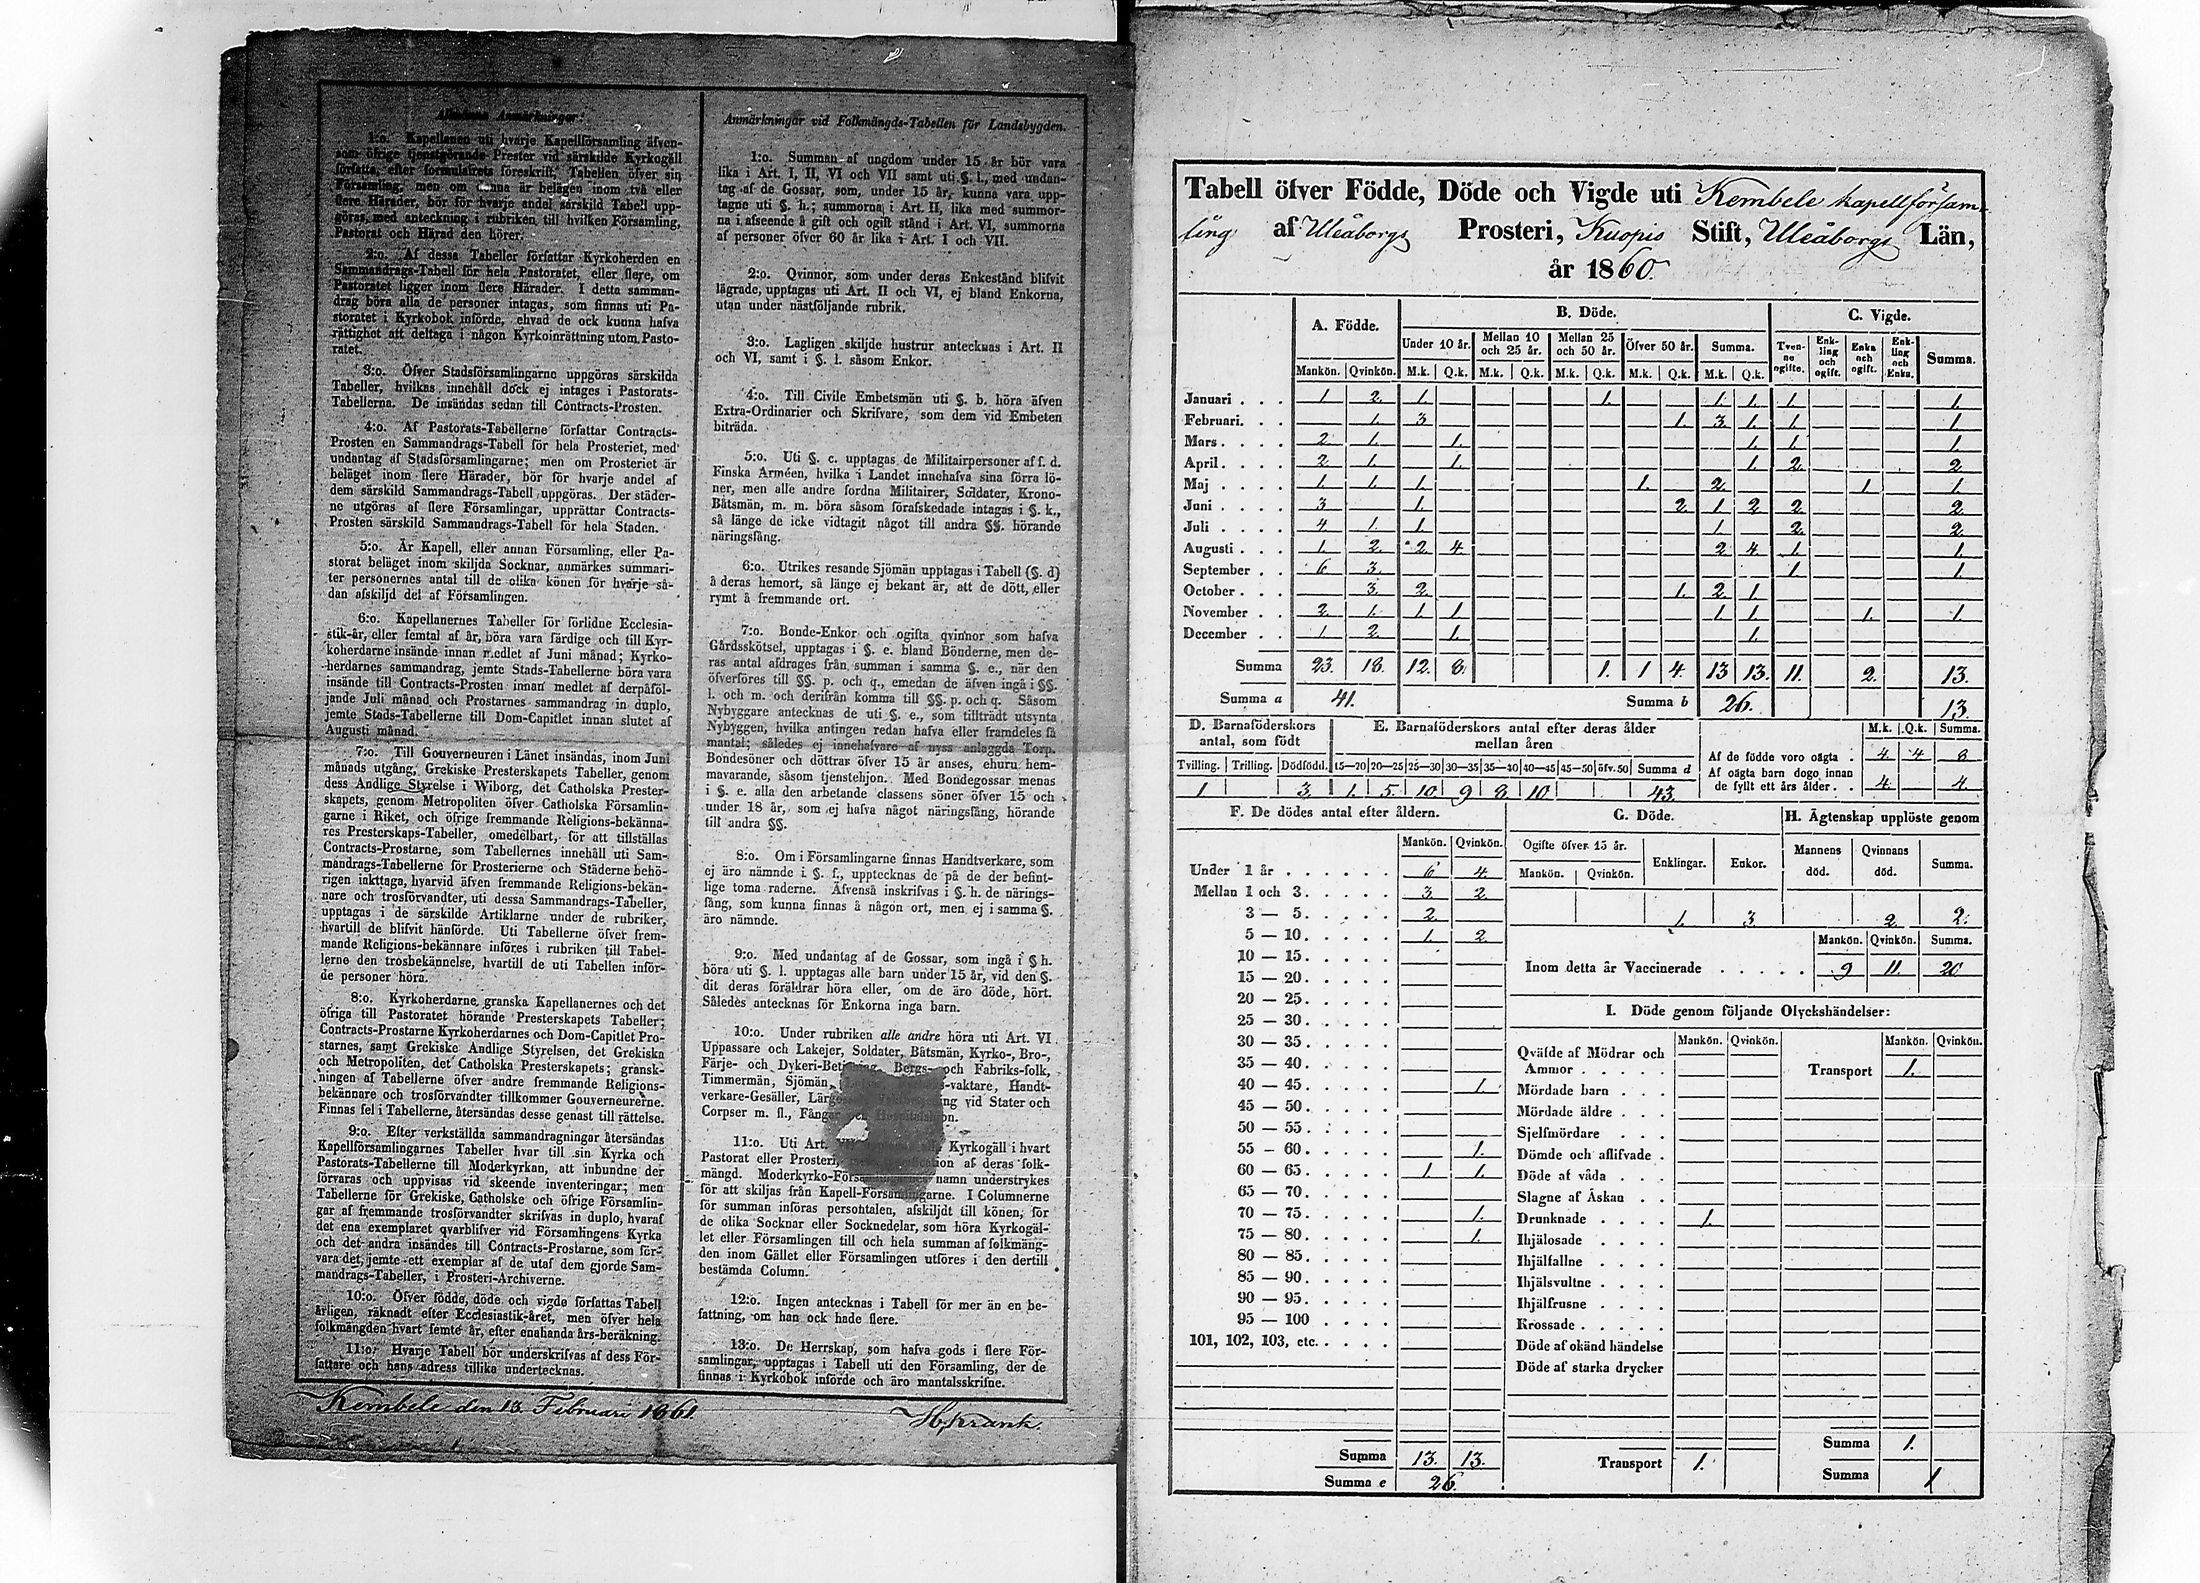 Allmänna Anmärkningar:
1:o. Kapellanen uti hvarje Kapellförsamling äfven-
som öfrige tjenstgörande Prester vid särskilde Kyrkogäll
författa, efter formulairets föreskrift, Tabellen öfver sin
Församling, men om denna är belägen inom två eller
flere Härader, bör för hvarje andel särskild Tabell upp-
göras, med anteckning i rubriken till hvilken Församling,
Pastorat och Härad den hörer.
2:o. Af dessa Tabeller författar Kyrkoherden en
Sammandrags-Tabell för hela Pastoratet, eller flere, om
Pastoratet ligger inom flere Härader. I detta samman-
drag böra alla de personer intagas, som finnas uti Pa-
storatet i Kyrkobok införde, ehvad de ock kunna hafva
rättighet att deltaga i någon Kyrkoinrättning utom Pasto-
ratet.
3:o. Öfver Stadsförsamlingarne uppgöras särskilda
Tabeller, hvilkas innehåll dock ej intages i Pastorats-
Tabellerna. De insändas sedan till Contracts-Prosten.
4:o. Af Pastorats-Tabellerne författar Contracts-
Prosten en Sammandrags-Tabell för hela Prosteriet, med
undantag af Stadsförsamlingarne; men om Prosteriet är
beläget inom flere Härader, bör för hvarje andel af
dem särskild Sammandrags-Tabell uppgöras. Der städer-
ne utgöras af flere Församlingar, upprättar Contracts-
Prosten särskild Sammandrags-Tabell för hela Staden.
5:o. Är Kapell, eller annan Församling, eller Pa-
storat beläget inom skiljda Socknar, anmärkes summari-
ter personernes antal till de olika könen för hvarje så-
dan afskiljd del af Församlingen.
6:o. Kapellanernes Tabeller för förlidne Ecclesia-
stik-år, eller femtal af år, böra vara färdige och till Kyr-
koherdarne insände innan medlet af Juni månad; Kyrko-
herdarnes sammandrag, jemte Stads-Tabellerne böra vara
insände till Contracts-Prosten innan medlet af derpåföl-
jande Juli månad och Prostarnes sammandrag in duplo,
jemte Stads-Tabellerne till Dom-Capitlet innan slutet af
Augusti månad.
7:o. Till Gouverneuren i Länet insändas, inom Juni
månads utgång, Grekiske Presterskapets Tabeller, genom
dess Andlige Styrelse i Wiborg, det Catholska Prester-
skapets, genom Metropoliten öfver Catholska Församlin-
garne i Riket, och öfrige fremmande Religions-bekänna-
res Presterskaps-Tabeller, omedelbart, för att tillställas
Contracts-Prostarne, som Tabellernes innehåll uti Sam-
mandrags-Tabellerne för Prosterierne och Städerne behö-
rigen iakttaga, hvarvid äfven fremmande Religions-bekän-
nare och trosförvandter, uti dessa Sammandrags-Tabeller,
upptagas i de särskilde Artiklarne under de rubriker,
hvartill de blifvit hänförde. Uti Tabellerne öfver frem-
mande Religions-bekännare införes i rubriken till Tabel-
lerne den trosbekännelse, hvartill de uti Tabellen inför-
de personer höra.
8:o. Kyrkoherdarne granska Kapellanernes och det
öfriga till Pastoratet hörande Presterskapets Tabeller;
Contracts-Prostarne Kyrkoherdarnes och Dom-Capitlet Pro-
starnes, samt Grekiske Andlige Styrelsen, det Grekiska
och Metropoliten, det Catholska Presterskapets; gransk-
ningen af Tabellerne öfver andre fremmande Religions-
bekännare och trosförvandter tillkommer Gouverneurerne.
Finnas fel i Tabellerne, återsändas desse genast till rättelse.
9:o. Efter verkställda sammandragningar återsändas
Kapellförsamlingarnes Tabeller hvar till sin Kyrka och
Pastorats-Tabellerne till Moderkyrkan, att inbundne der
förvaras och uppvisas vid skeende inventeringar; men
Tabellerne för Grekiske, Catholske och öfrige Församlin-
gar af fremmande trosförvandter skrifvas in duplo, hvaraf
det ena exemplaret qvarblifver vid Församlingens Kyrka
och det andra insändes till Contracts-Prostarne, som för-
vara det, jemte ett exemplar af de utaf dem gjorde Sam-
mandrags-Tabeller, i Prosteri-Archiverne.
10:o. Öfver födde, döde och vigde författas Tabell
årligen, räknadt efter Ecclesiastik-året, men öfver hela
folkmängden hvart femte år, efter enahanda års-beräkning.
11:o. Hvarje Tabell bör underskrifvas af dess För-
fattare och hans adress tillika undertecknas.
Kembele den 13. Februari 1861.
Anmärkningar vid Folkmängds-Tabellen för Landsbygden.
1:o. Summan af ungdom under 15 år bör vara
lika i Art. I, II, VI och VII samt uti §. l., med undan-
tag af de Gossar, som, under 15 år, kunna vara upp-
tagne uti §. h.; summorna i Art. II, lika med summor-
na i afseende å gift och ogift stånd i Art. VI, summorna
af personer öfver 60 år lika i Art. I och VII.
2:o. Qvinnor, som under deras Enkestånd blifvit
lägrade, upptagas uti Art. II och VI, ej bland Enkorna,
utan under nästföljande rubrik.
3:o. Lagligen skiljde hustrur antecknas i Art. II
och VI, samt i §. l. såsom Enkor.
4:o. Till Civile Embetsmän uti §. b. höra äfven
Extra-Ordinarier och Skrifvare, som dem vid Embeten
biträda.
5:o. Uti §. c. upptagas de Militairpersoner af f. d.
Finska Arméen, hvilka i Landet innehafva sina förra lö-
ner, men alle andre fordna Militairer, Soldater, Krono-
Båtsmän, m. m. böra såsom förafskedade intagas i §. k.,
så länge de icke vidtagit något till andra §§. hörande
näringsfång.
6:o. Utrikes resande Sjömän upptagas i Tabell (§. d)
å deras hemort, så länge ej bekant är, att de dött, eller
rymt å fremmande ort.
7:o. Bonde-Enkor och ogifta qvinnor som hafva
Gårdsskötsel, upptagas i §. e. bland Bönderne, men de-
ras antal afdrages från summan i samma §. e., när den
öfverföres till §§. p. och q., emedan de äfven ingå i §§.
l. och m. och derifrån komma till §§. p. och q. Såsom
Nybyggare antecknas de uti §. e., som tillträdt utsynta
Nybyggen, hvilka antingen redan hafva eller framdeles få
mantal; således ej innehafvare af nyss anlaggda Torp.
Bondesöner och döttrar öfver 15 år anses, ehuru hem-
mavarande, såsom tjenstehjon. Med Bondegossar menas
i §. e. alla den arbetande classens söner öfver 15 och
under 18 år, som ej hafva något näringsfång, hörande
till andra §§.
8:o. Om i Församlingarne finnas Handtverkare, som
ej äro nämnde i §. f., upptecknas de på de der befint-
lige toma raderne. Äfvenså inskrifvas i §. h. de närings-
fång, som kunna finnas å någon ort, men ej i samma §.
äro nämnde.
9:o. Med undantag af de Gossar, som ingå i § h.
böra uti §. l. upptagas alle barn under 15 år, vid den §.
dit deras föräldrar höra eller, om de äro döde, hört.
Således antecknas för Enkorna inga barn.
10:o. Under rubriken alle andre höra uti Art. VI
Uppassare och Lakejer, Soldater, Båtsmän, Kyrko-, Bro-,
Färje- och Dykeri-Betjening, Bergs- och Fabriks-folk,
Timmermän, Sjömän, -vaktare, Handt-
verkare-Gesäller, vid Stater och
Corpser m. fl., Fångar
11:o. Uti Art. Kyrkogäll i hvart
Pastorat eller Prosteri, af deras folk-
mängd. Moderkyrko-Församlingens namn understrykes
för att skiljas från Kapell-Församlingarne. I Columnerne
för summan införas persontalen, afskiljdt till könen, för
de olika Socknar eller Socknedelar, som höra Kyrkogäl-
let eller Församlingen till och hela summan af folkmäng-
den inom Gället eller Församlingen utföres i den dertill
bestämda Column.
12:o. Ingen antecknas i Tabell för mer än en be-
fattning, om han ock hade flere.
13:o. De Herrskap, som hafva gods i flere För-
samlingar, upptagas i Tabell uti den Församling, der de
finnas i Kyrkobok införde och äro mantalsskrifne.
Tabell öfver Födde, Döde och Vigde uti Kembele kapellförsam-
ling af Uleåborgs Prosteri, Kuopio Stift, Uleåborgs Län,
år 1860.
A. Födde. B. Döde. C. Vigde.
Under 10 år. Mellan 10 och 25 år. Mellan 25 och 50 år. Öfver 50 år. Summa. Tven-ne ogifte. Enk-ling och ogift. Enka och ogift. Enk-ling och Enka. Summa.
Mankön. Qvinkön. M.k. Q.k. M.k. Q.k. M.k. Q.k. M.k. Q.k. M.k. Q.k.
Januari . . . 1 2. 1. 1. 1. 1. 1. 1.
Februari. . . 1. 3 1. 3. 1. 1. 1.
Mars . . . . 2 1. 1. 1. 1. 1.
April . . . . 2 1. 1. 1. 2. 2.
Maj . . . . 1. 1. 1. 1. 2. 1. 1.
Juni . . . . 3 1. 2. 1 2 2. 2.
Juli . . . . 4. 1. 1. 1. 2. 2.
Augusti . . . 1. 2. 2. 4. 2 4. 1. 1.
September . . 6 3. 1. 1.
October . . . 3. 2. 1. 2. 1
November . . 2. 1. 1. 1 1. 1. 1. 1.
December . . 1. 2. 1. 1.
Summa 23. 18. 12. 8. 1. 1 4. 13 13. 11. 2. 13.
Summa a 41. Summa b 26. 13.
D. Barnaföderskors antal, som födt
Tvilling. Trilling. Dödfödd.
1 3.
E. Barnaföderskors antal efter deras ålder mellan åren
15—20 20—25 25—30 30—35 35—40 40—45 45—50 öfv. 50 Summa d
1. 5. 10. 9 8 10. 43.
M.k. Q.k. Summa.
Af de födde voro oägta . 4. 4 8
Af oägta barn dogo innan
de fyllt ett års ålder . . 4. 4.
F. De dödes antal efter åldern.
Mankön. Qvinkön.
Under 1 år . . . . . . 6 4.
Mellan 1 och 3. . . . . 3. 2.
3 — 5. . . . . 2.
5 — 10. . . . . 1. 2.
10 — 15. . . . .
15 — 20. . . . .
20 — 25. . . . .
25 — 30. . . . .
30 — 35. . . . .
35 — 40. . . . .
40 — 45. . . . . 1.
45 — 50. . . . .
50 — 55. . . . .
55 — 60. . . . . 1.
60 — 65. . . . . 1. 1.
65 — 70. . . . .
70 — 75. . . . . 1.
75 — 80. . . . . 1.
80 — 85. . . . .
85 — 90. . . . .
90 — 95. . . . .
95 — 100 . . . . .
101, 102, 103, etc. . . . .
Summa 13. 13.
Summa e 26.
G. Döde.
Ogifte öfver 15 år. Enklingar. Enkor.
Mankön. Qvinkön.
1. 3.
H. Ägtenskap upplöste genom
Mannens död. Qvinnans död. Summa.
2. 2.
Mankön. Qvinkön. Summa.
Inom detta år Vaccinerade . . . . . 9 11. 20
I. Döde genom följande Olyckshändelser:
Mankön. Qvinkön. Mankön. Qvinkön.
Qväfde af Mödrar och
Ammor . . . . . Transport 1.
Mördade barn . . .
Mördade äldre . . .
Sjelfmördare . . .
Dömde och aflifvade .
Döde af våda . . .
Slagne af Åskan . .
Drunknade . . . . 1.
Ihjälosade . . . .
Ihjälfallne . . . .
Ihjälsvultne . . . .
Ihjälfrusne . . . .
Krossade . . . . .
Döde af okänd händelse
Döde af starka drycker
Summa 1.
Transport 1. Summa 1